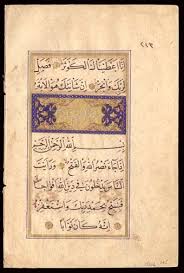 انا اعطيناك الكوثر فصل
لربك وانحر ان شانئك هو الابتر
بسم الله الرحمن الرحيم
اذا جاء نصر الله والفتح ورايت
الناس يدخلون في دين الله افواجا
فسبح بحمد ربك واستغفره
انه كان توابا